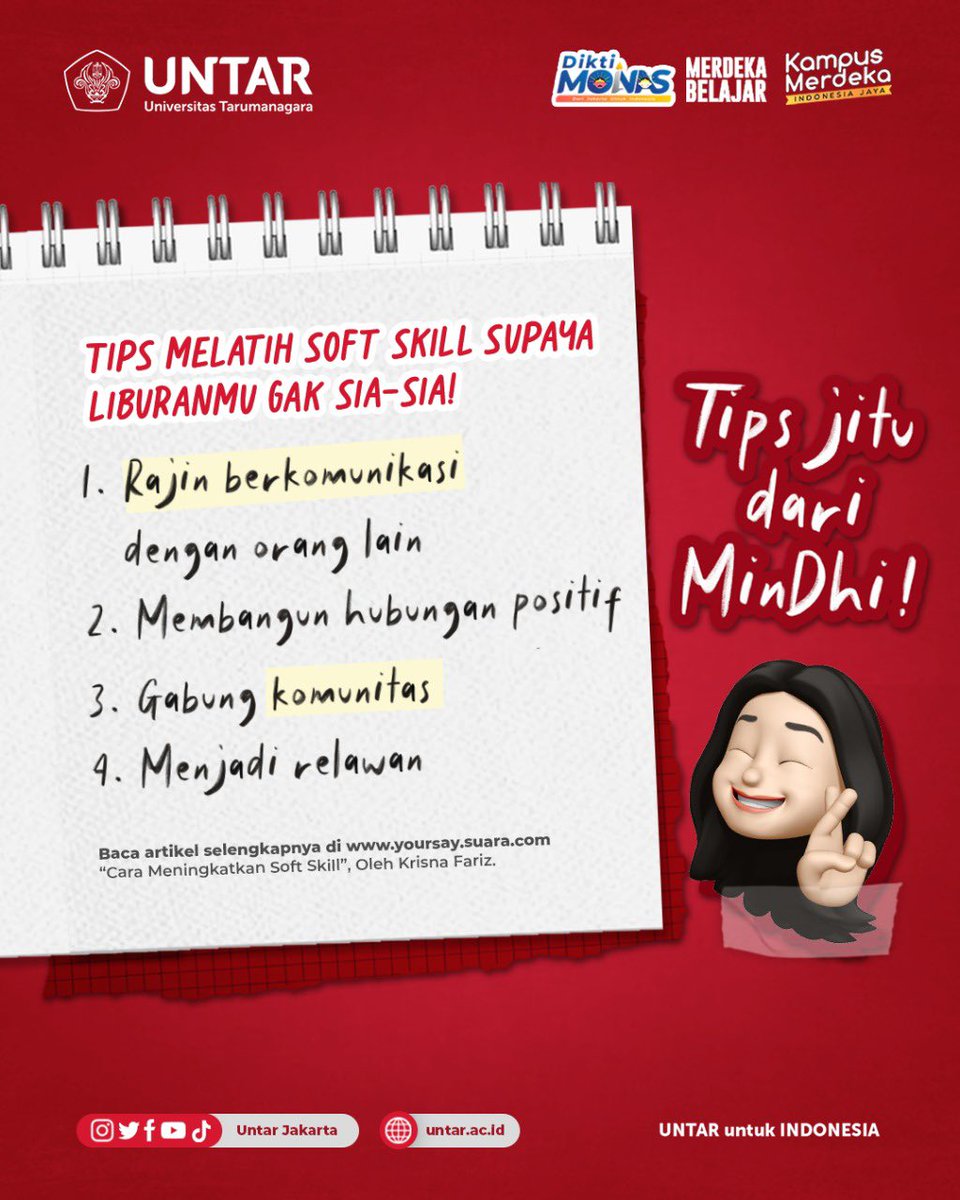 UNTAR
Universitas Tarumanagara
Dikti
MONAS
MERDEKA
BELAJAR
Kampus
Merdeka
INDONESIA JAYA
TIPS MELATIH SOFT SKILL SUPAYA
LIBURANMU GAK SIA-SIA!
1. Rajin berkomunikasi
dengan orang lain
2. Membangun hubungan positif
3. Gabung komunitas
4. Menjadi relawan
Baca artikel selengkapnya di www.yoursay.suara.com
“Cara Meningkatkan Soft Skill”, Oleh Krisna Fariz.
Tips jitu
dari
MinDhi!
Untar Jakarta
untar.ac.id
UNTAR untuk INDONESIA